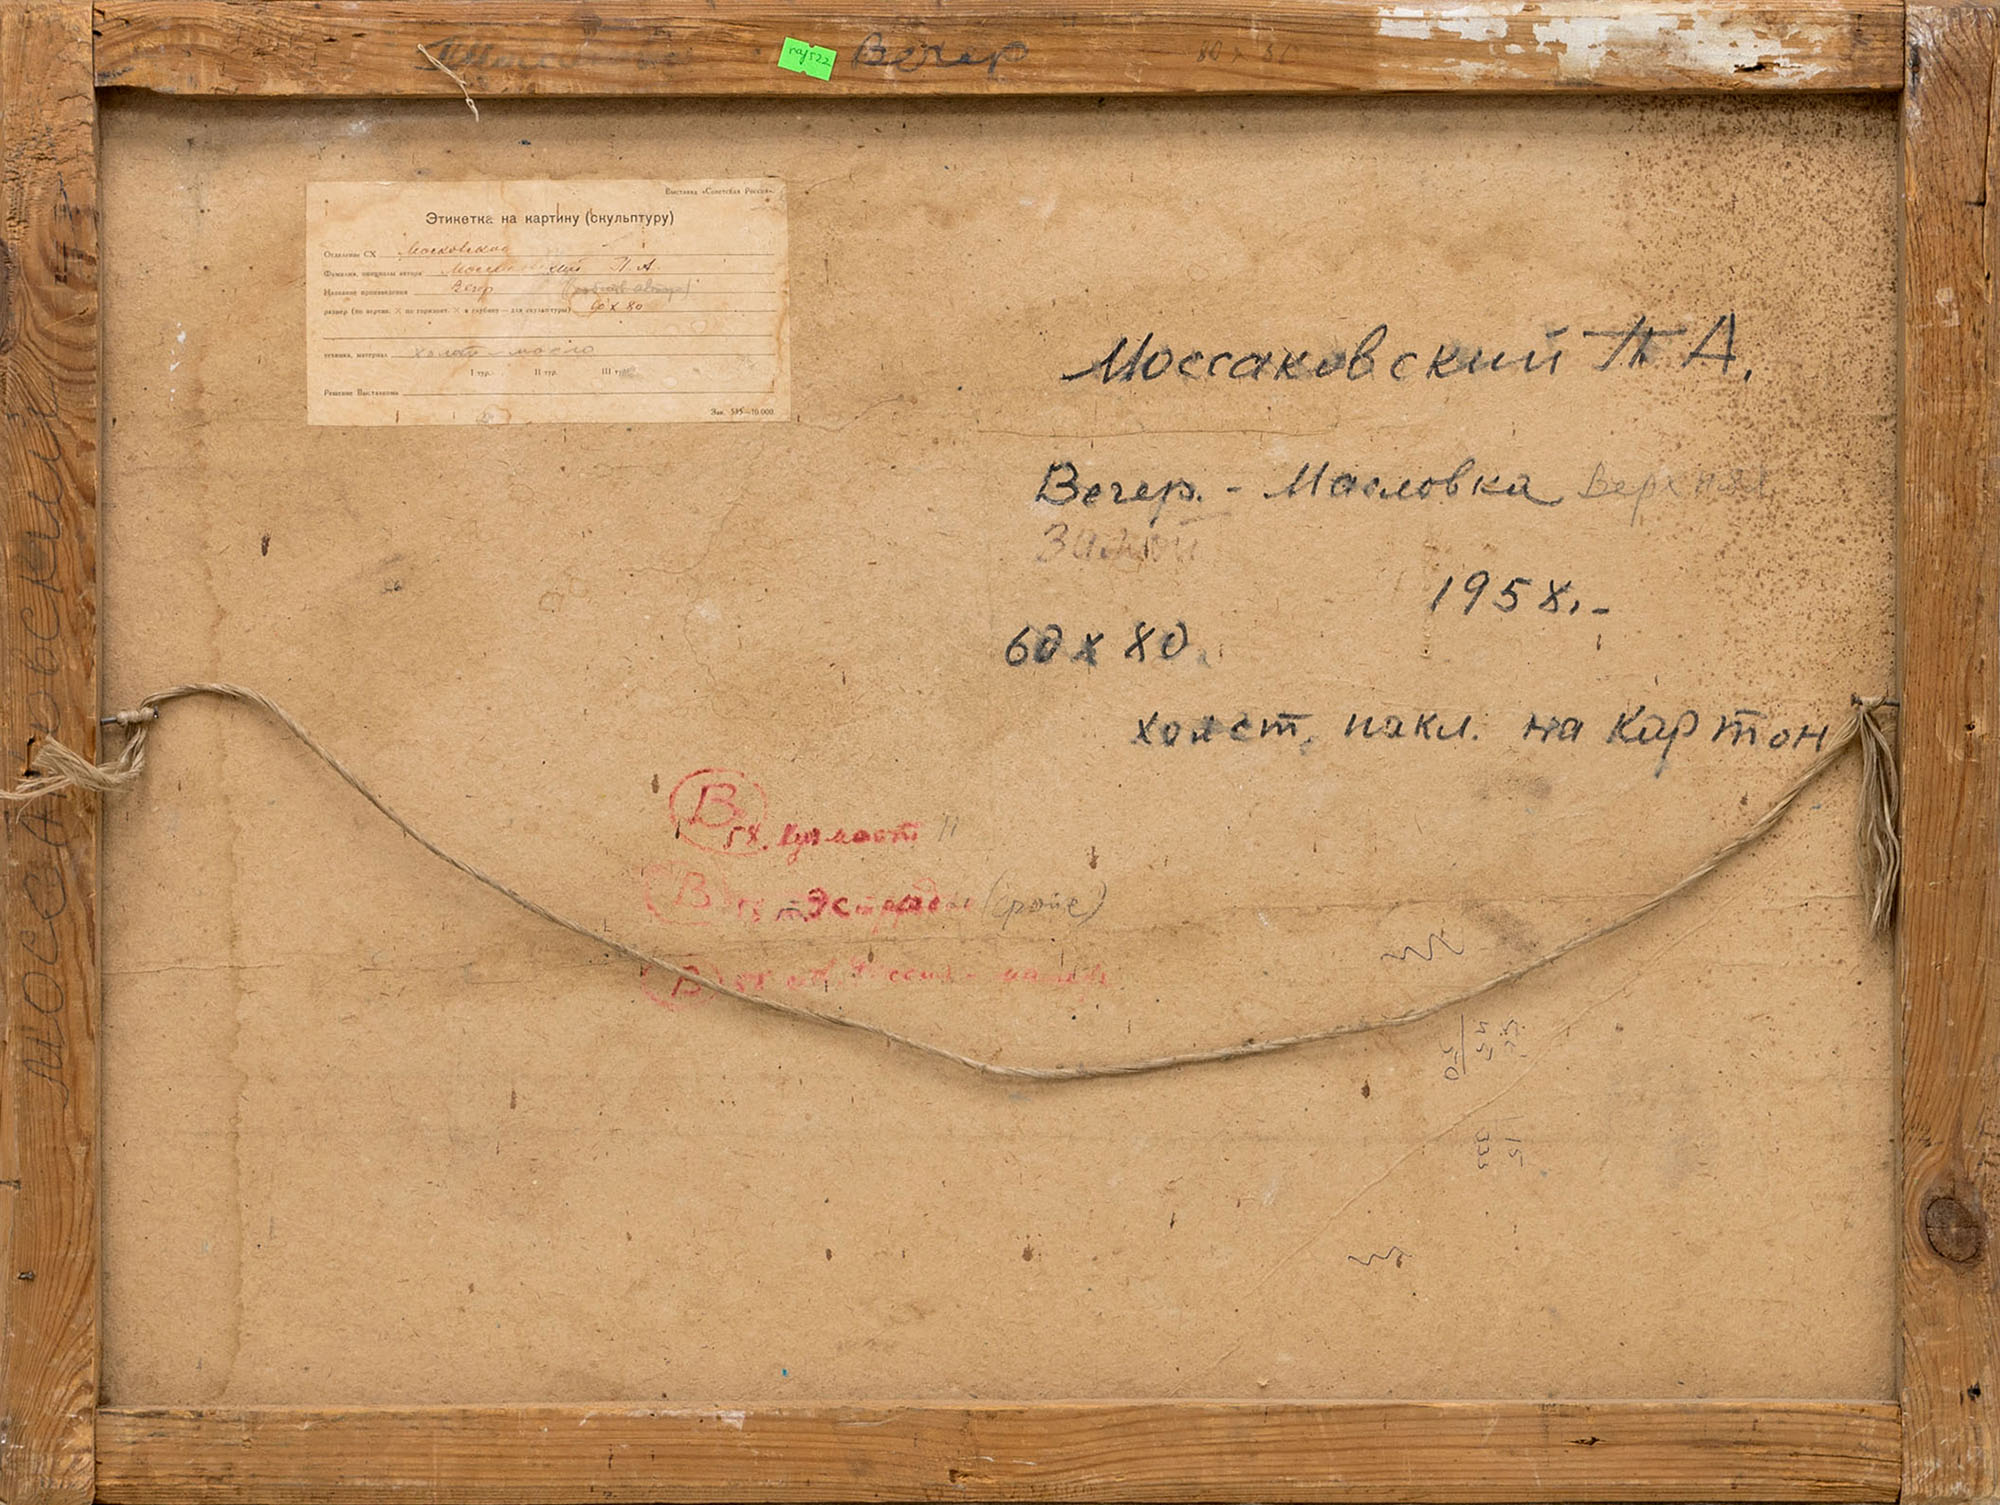 Вечер
naf522
Выставка «Советская Россия».
Этикетка на картину (скульптуру)
Отделение СХ Московское
Фамилия, инициалы автора П. А.
Название произведения Вечер
размер (по вертик. X по горизонт. X в глубину — для скульптуры) 60 x 80
техника, материал холст - масло
I тур. II тур. III тур.
Решение Выставкома
Зак. 535—10.000.
Моссаковский П А.
Вечер. - Масловка Верхняя
Зимой
1958.-
60 x 80.
холст, накл. на картон
В 58. Кузмост
В 58 Эстрады
В 58
МОССАКОВСКИЙ
15
333